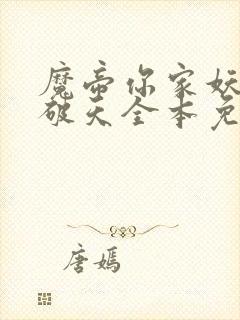 魔帝你家妖
破天全本免
唐嫣